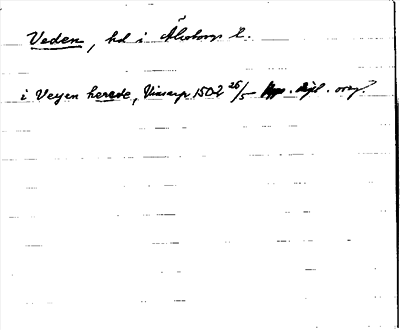 Veden, hd i Älvsborgs l.
i Veyen herede, Vinsarp 1502 26/5 dipl. orig.?